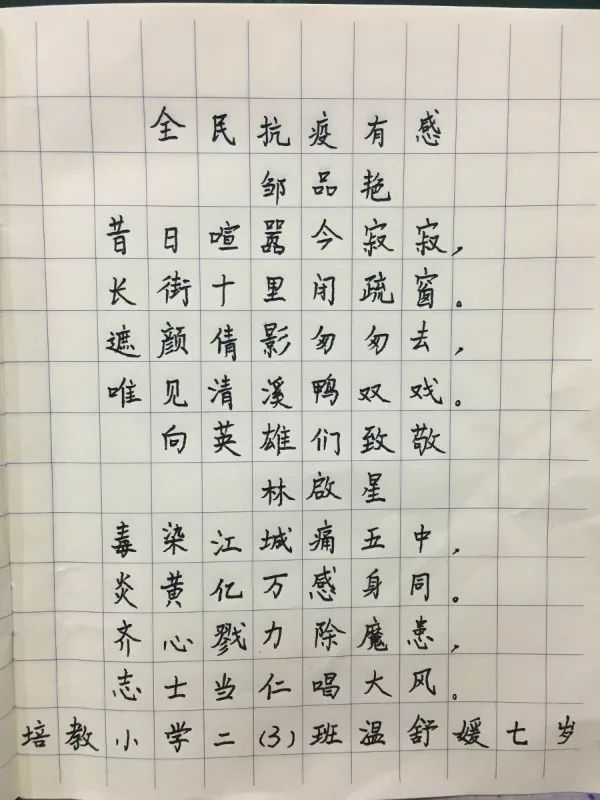 全民抗疫有感
邹品艳
昔日喧嚣今寂寂，
长街十里闭疏窗。
遮颜倩影匆匆去，
唯见清溪鸭双戏。
向英雄们致敬
林啟星
毒染江城痛五中，
炎黄亿万感身同。
齐心戮力除魔患，
志士当仁唱大风。
培教小学二(3)班温舒媛七岁